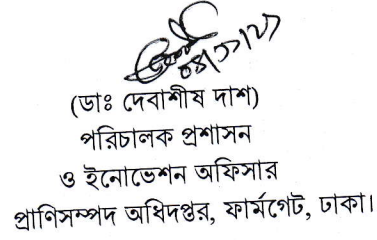 (ডাঃ দেবাশীষ দাশ)
পরিচালক প্রশাসন
ও ইনোভেশন অফিসার
প্রাণিসম্পদ অধিদপ্তর, ফার্মগেট, ঢাকা।